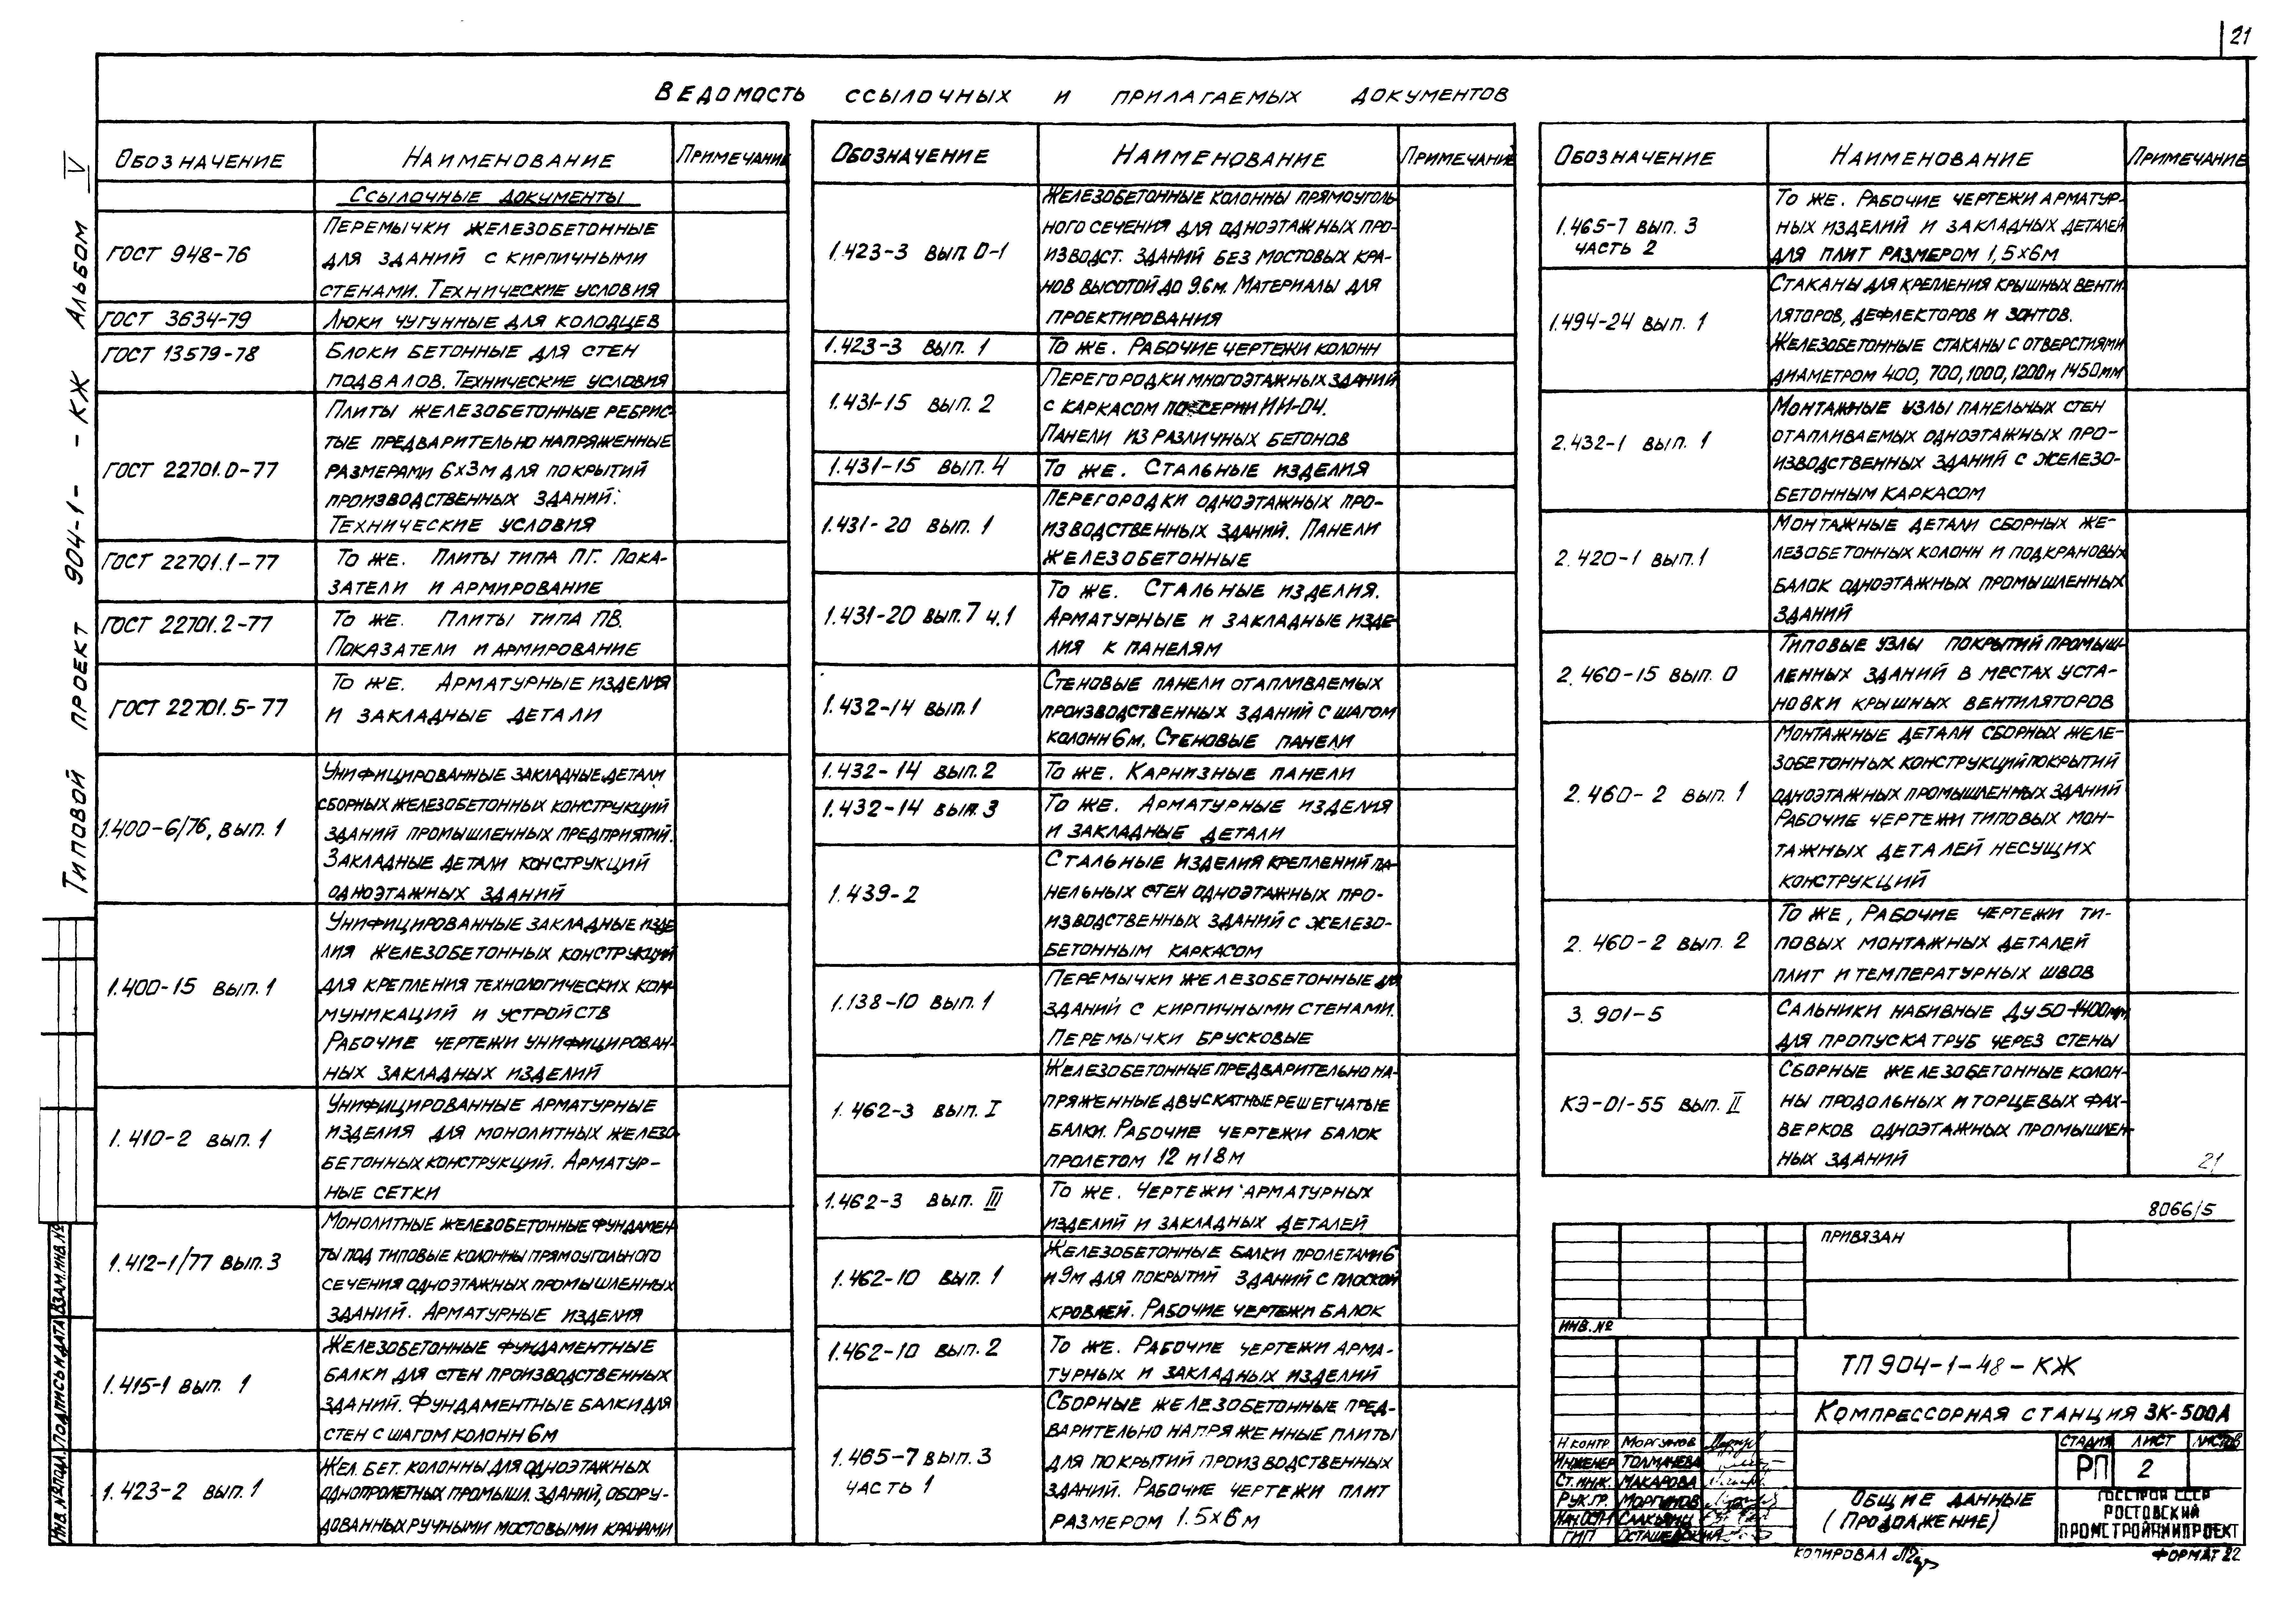 21
Ведомость ссылочных и прилагаемых документов
Типовой проект 904-1- -КЖ Альбом V
Обозначение Наименование Примечание
Ссылочные документы
ГОСТ 948-76
Перемычки железобетонные
для зданий с кирпичными
стенами. Технические условия
ГОСТ 3634-79
Люки чугунные для колодцев
ГОСТ 13579-78
Блоки бетонные для стен
подвалов. Технические условия
ГОСТ 22701.0-77
Плиты железобетонные ребрис-
тые предварительно напряженные
размерами 6х3м для покрытий
производственных зданий.
Технические условия
ГОСТ 22701.1-77
То же. Плиты типа ПГ. Пока-
затели и армирование
ГОСТ 22701.2-77
То же. Плиты типа ПВ.
Показатели и армирование
ГОСТ 22701.5-77
То же. Арматурные изделия
и закладные детали
1.400-6/76, вып. 1
Унифицированные закладные детали
сборных железобетонных конструкций
зданий промышленных предприятий.
Закладные детали конструкций
одноэтажных зданий
1.400-15 вып. 1
Унифицированные закладные изде
лия железобетонных конструкций
для крепления технологических ком-
муникаций и устройств
Рабочие чертежи унифицирован-
ных закладных изделий
1.410-2 вып. 1
Унифицированные арматурные
изделия для монолитных железо-
бетонных конструкций. Арматур-
ные сетки
1.412-1/77 вып. 3
Монолитные железобетонные фундамен-
ты под типовые колонны прямоугольного
сечения одноэтажных промышленных
зданий. Арматурные изделия
1.415-1 вып. 1
Железобетонные фундаментные
балки для стен производственных
зданий. Фундаментные балки для
стен с шагом колонн 6м
1.423-2 вып. 1
Жел. бет. колонны для одноэтажных
однопролетных промышл. зданий, обору-
дованных ручными мостовыми кранами
Обозначение Наименование Примечание
1.423-3 вып. 0-1
Железобетонные колонны прямоуголь-
ного сечения для одноэтажных про-
изводст. зданий без мостовых кра-
нов высотой до 9.6м. Материалы для
проектирования
1.423-3 вып. 1
То же. Рабочие чертежи колонн
1.431-15 вып. 2
Перегородки многоэтажных зданий
с каркасом по серии ИИ-04.
Панели из различных бетонов
1.431-15 вып. 4
То же. Стальные изделия
1.431-20 вып. 1
Перегородки одноэтажных про-
изводственных зданий. Панели
железобетонные
1.431-20 вып. 7 ч. 1
То же. Стальные изделия.
Арматурные и закладные изде-
лия к панелям
1.432-14 вып. 1
Стеновые панели отапливаемых
производственных зданий с шагом
колонн 6м. Стеновые панели
1.432-14 вып. 2
То же. Карнизные панели
1.432-14 вып. 3
То же. Арматурные изделия
и закладные детали
1.439-2
Стальные изделия креплений па-
нельных стен одноэтажных про-
изводственных зданий с железо-
бетонным каркасом
1.138-10 вып. 1
Перемычки железобетонные для
зданий с кирпичными стенами.
Перемычки брусковые
1.462-3 вып. I
Железобетонные предварительно на-
пряженные двускатные решетчатые
балки. Рабочие чертежи балок
пролетом 12 и 18м
1.462-3 вып. III
То же. Чертежи арматурных
изделий и закладных деталей
1.462-10 вып. 1
Железобетонные балки пролетами 6
и 9м для покрытий зданий с плоской
кровлей. Рабочие чертежи балок
1.462-10 вып. 2
То же. Рабочие чертежи арма-
турных и закладных изделий
1.465-7 вып. 3
часть 1
Сборные железобетонные пред-
варительно напряженные плиты
для покрытий производственных
зданий. Рабочие чертежи плит
размером 1.5х6м
Обозначение Наименование Примечание
1.465-7 вып. 3
часть 2
То же. Рабочие чертежи арматур-
ных изделий и закладных деталей
для плит размером 1,5х6м
1.494-24 вып. 1
Стаканы для крепления крышных венти-
ляторов, дефлекторов и зонтов.
Железобетонные стаканы с отверстиями
диаметром 400, 700, 1000, 1200 и 1450мм
2.432-1 вып. 1
Монтажные узлы панельных стен
отапливаемых одноэтажных про-
изводственных зданий с железо-
бетонным каркасом
2.420-1 вып. 1
Монтажные детали сборных же-
лезобетонных колонн и подкрановых
балок одноэтажных промышленных
зданий
2.460-15 вып. 0
Типовые узлы покрытий промыш-
ленных зданий в местах уста-
новки крышных вентиляторов
2.460-2 вып. 1
Монтажные детали сборных желе-
зобетонных конструкций покрытий
одноэтажных промышленных зданий
Рабочие чертежи типовых мон-
тажных деталей несущих
конструкций
2.460-2 вып. 2
То же, Рабочие чертежи ти-
повых монтажных деталей
плит и температурных швов
3.901-5
Сальники набивные Ду 50-1400мм
для пропуска труб через стены
КЭ-01-55 вып. II
Сборные железобетонные колон-
ны продольных и торцевых фах-
верков одноэтажных промышлен-
ных зданий
21
8066/5
Привязан
Инв. №
ТП 904-1-48-КЖ
Компрессорная станция 3К-500А
Н контр. Моргунов
Инженер Толмачева
Ст. инж. Макарова
Рук. гр. Моргунов
Нач. ОСП
ГИП Осташевский
Стадия Лист Листов
РП 2
Общие данные
(Продолжение)
Госстрой СССР
Ростовский
Промстройниипроект
Копировал
Формат 22
Инв. № подл. Подпись и дата Взам. инв. №